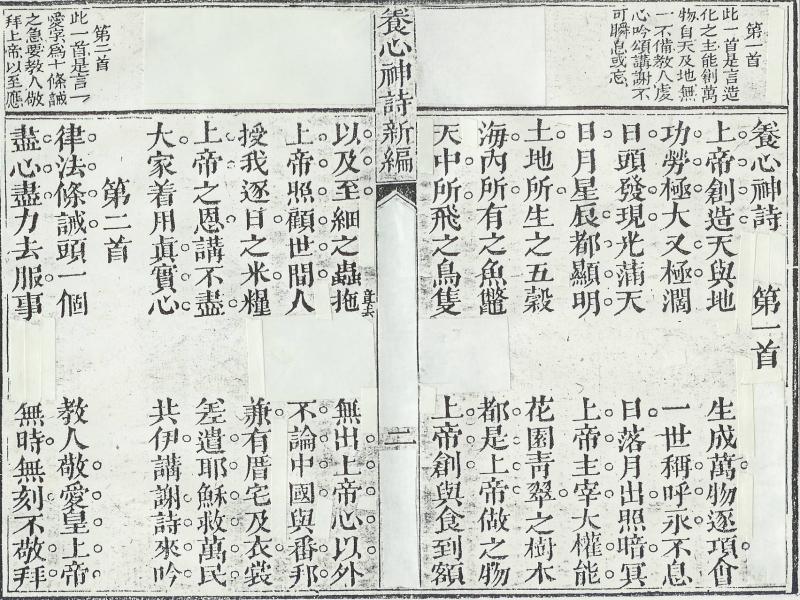 第一首
此一首是言造
化之主能創萬
物自天及地無
一不備教人虔
心吟頌講謝不
可瞬息或忘
養心神詩 第一首
上帝創造天與地 生成萬物逐項會
功勞極大又極濶 一世稱呼永不息
日頭發現光蒲天 日落月出照暗冥
日月星辰都顯明 上帝主宰大權能
土地所生之五穀 花園靑翠之樹木
海內所有之魚鼈 都是上帝做之物
天中所飛之鳥隻 上帝創與食到額
養心神詩新編
二
第二首
此一首是言一
愛字爲十條誡
之急要教人做
拜上帝以至應
以及至細之蟲拖 無出上帝心以外
上帝照顧世間人 不論中國與番邦
授我逐日之米糧 兼有厝宅及衣裳
上帝之恩講不盡 差遣耶穌救萬民
大家着用眞實心 共伊講謝詩來吟
第二首
律法條誡頭一個 教人敬愛皇上帝
盡心盡力去服事 無時無刻不敬拜